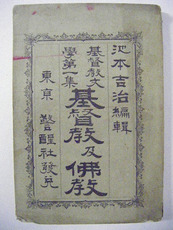 池本吉治編輯
基督教文
學第一集
基督教及佛教
東京 警醒社發兌